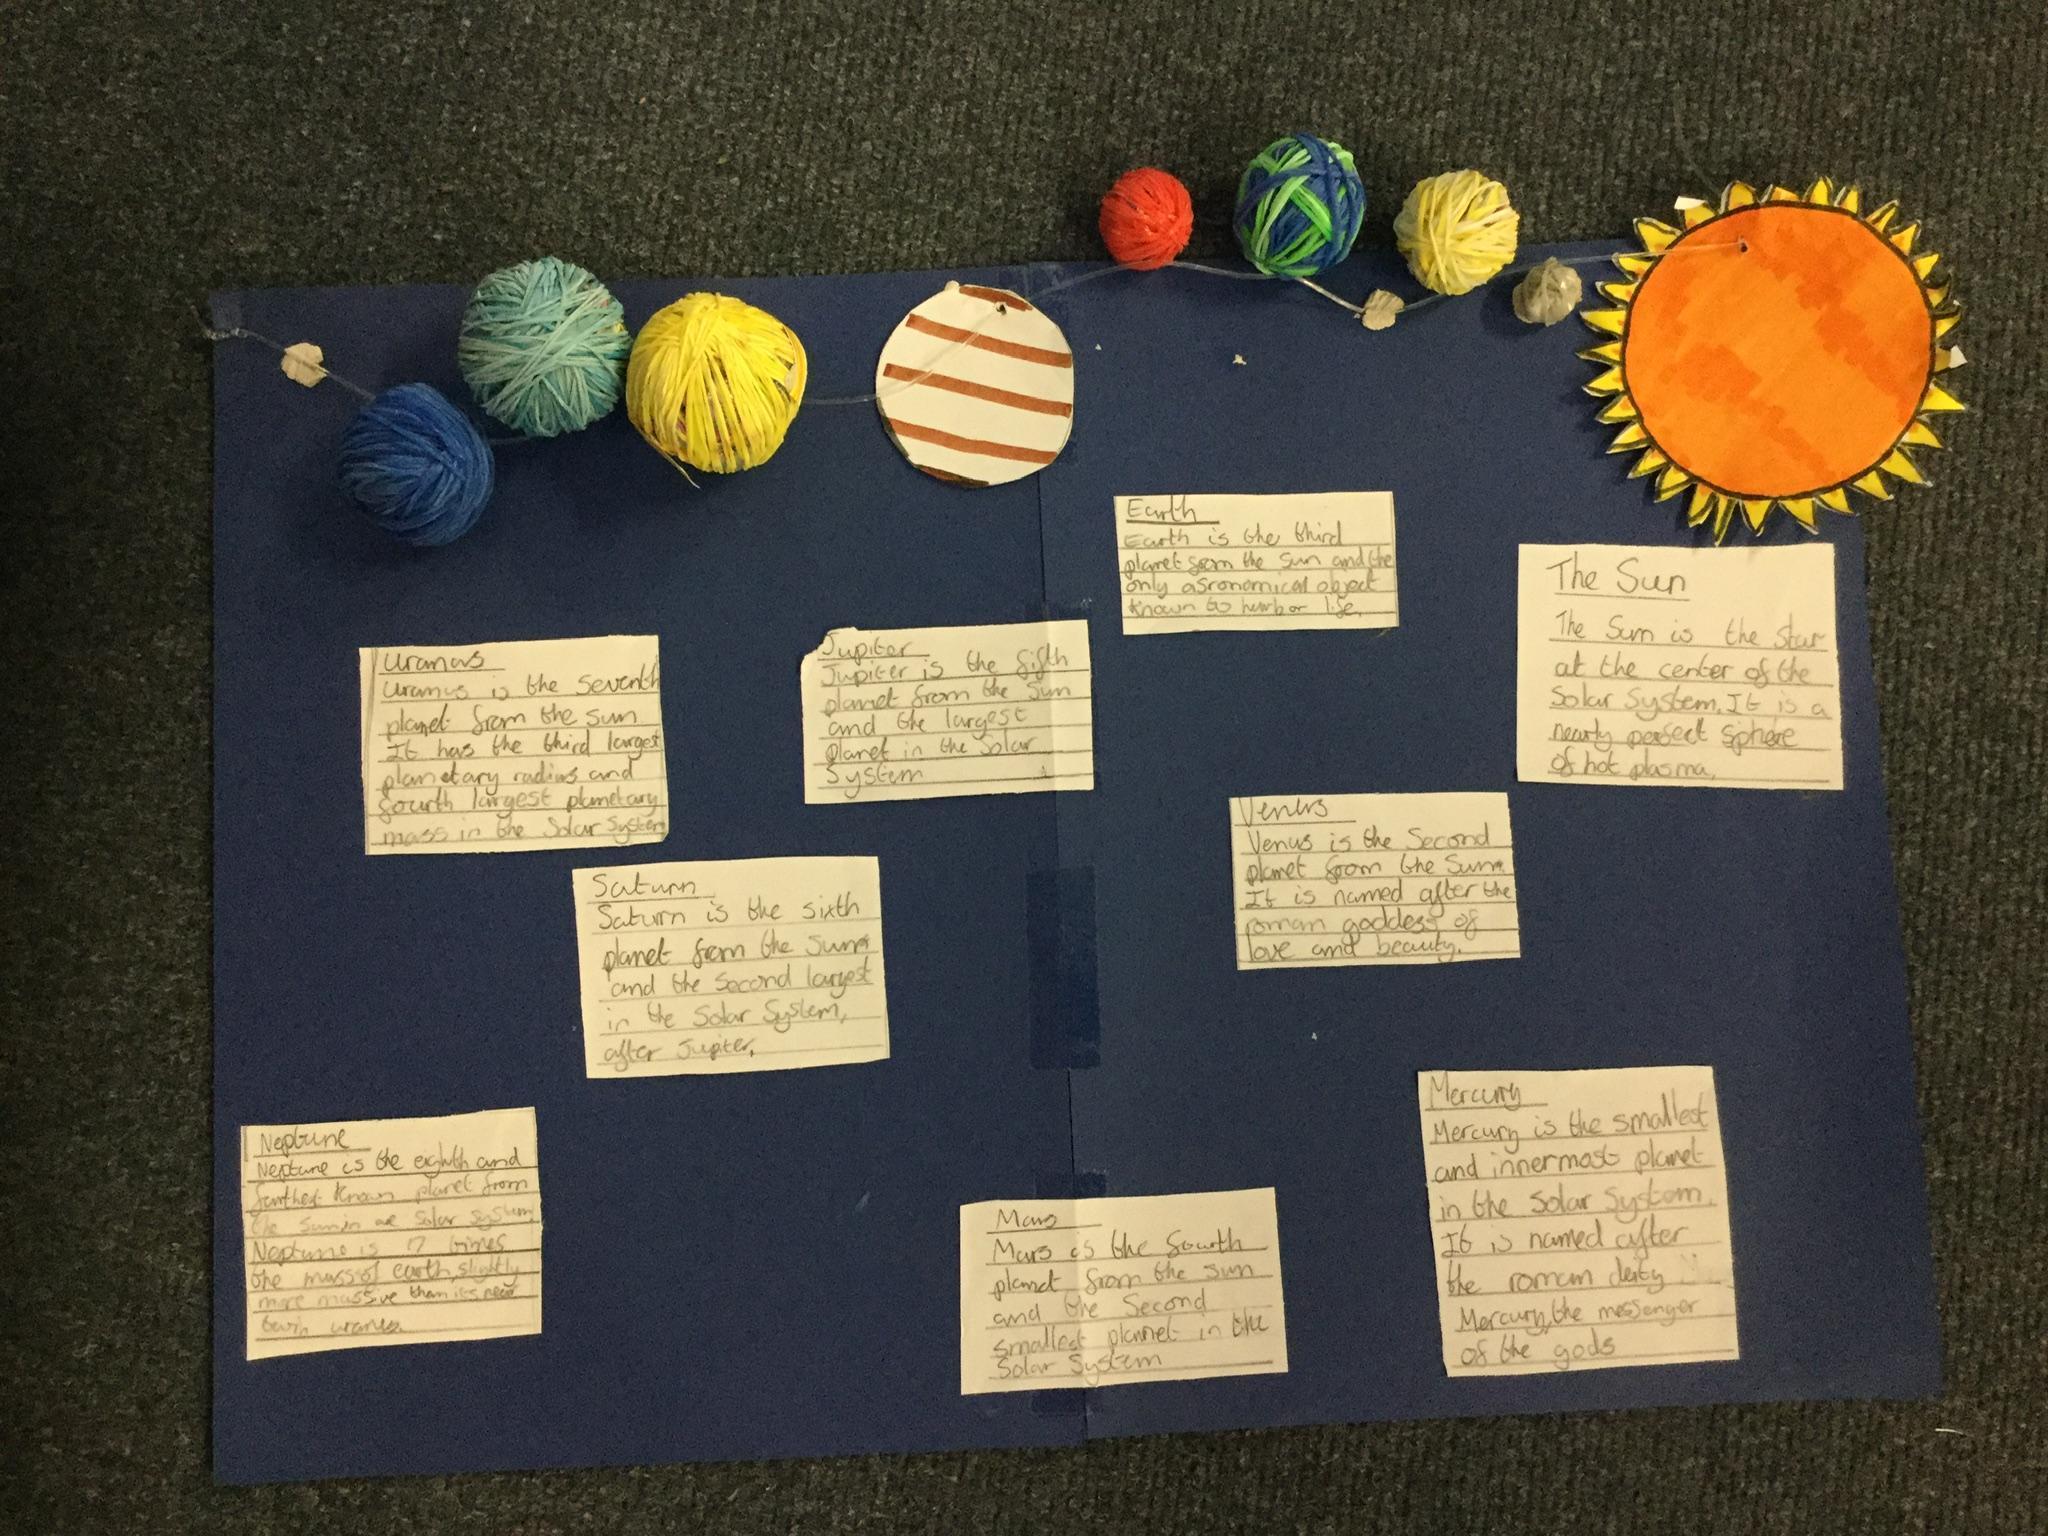 Earth
Earth is the third
planet from the Sun and the
only asronomical object
known to harbor life.
The Sun
The Sun is the Star
at the center of the
Solar System. It is a
nearly perfect sphere
of hot plasma.
Uranus
Uranus is the Seventh
planet from the sun
It has the third largest
planetary radius and
fourth largest planetary
mass in the Solar System
Jupiter
Jupiter is the fifth
planet from the Sun
and the largest
planet in the Solar
System
Venus
Venus is the Second
planet from the Sun.
It is named after the
roman goddess of
love and beauty.
Saturn
Saturn is the sixth
planet from the Sun
and the Second largest
in the Solar System,
after Jupiter.
Mercury
Mercury is the smallest
and innermost planet
in the Solar System.
It is named after
the roman deity
Mercury, the messenger
of the gods
Neptune
Neptune is the eighth and
farthest known planet from
the Sun in are Solar System
Neptune is 17 times
the mass of earth, slightly
more massive than its near
twin uranus.
Mars
Mars is the fourth
planet from the sun
and the Second
smallest planet in the
Solar System